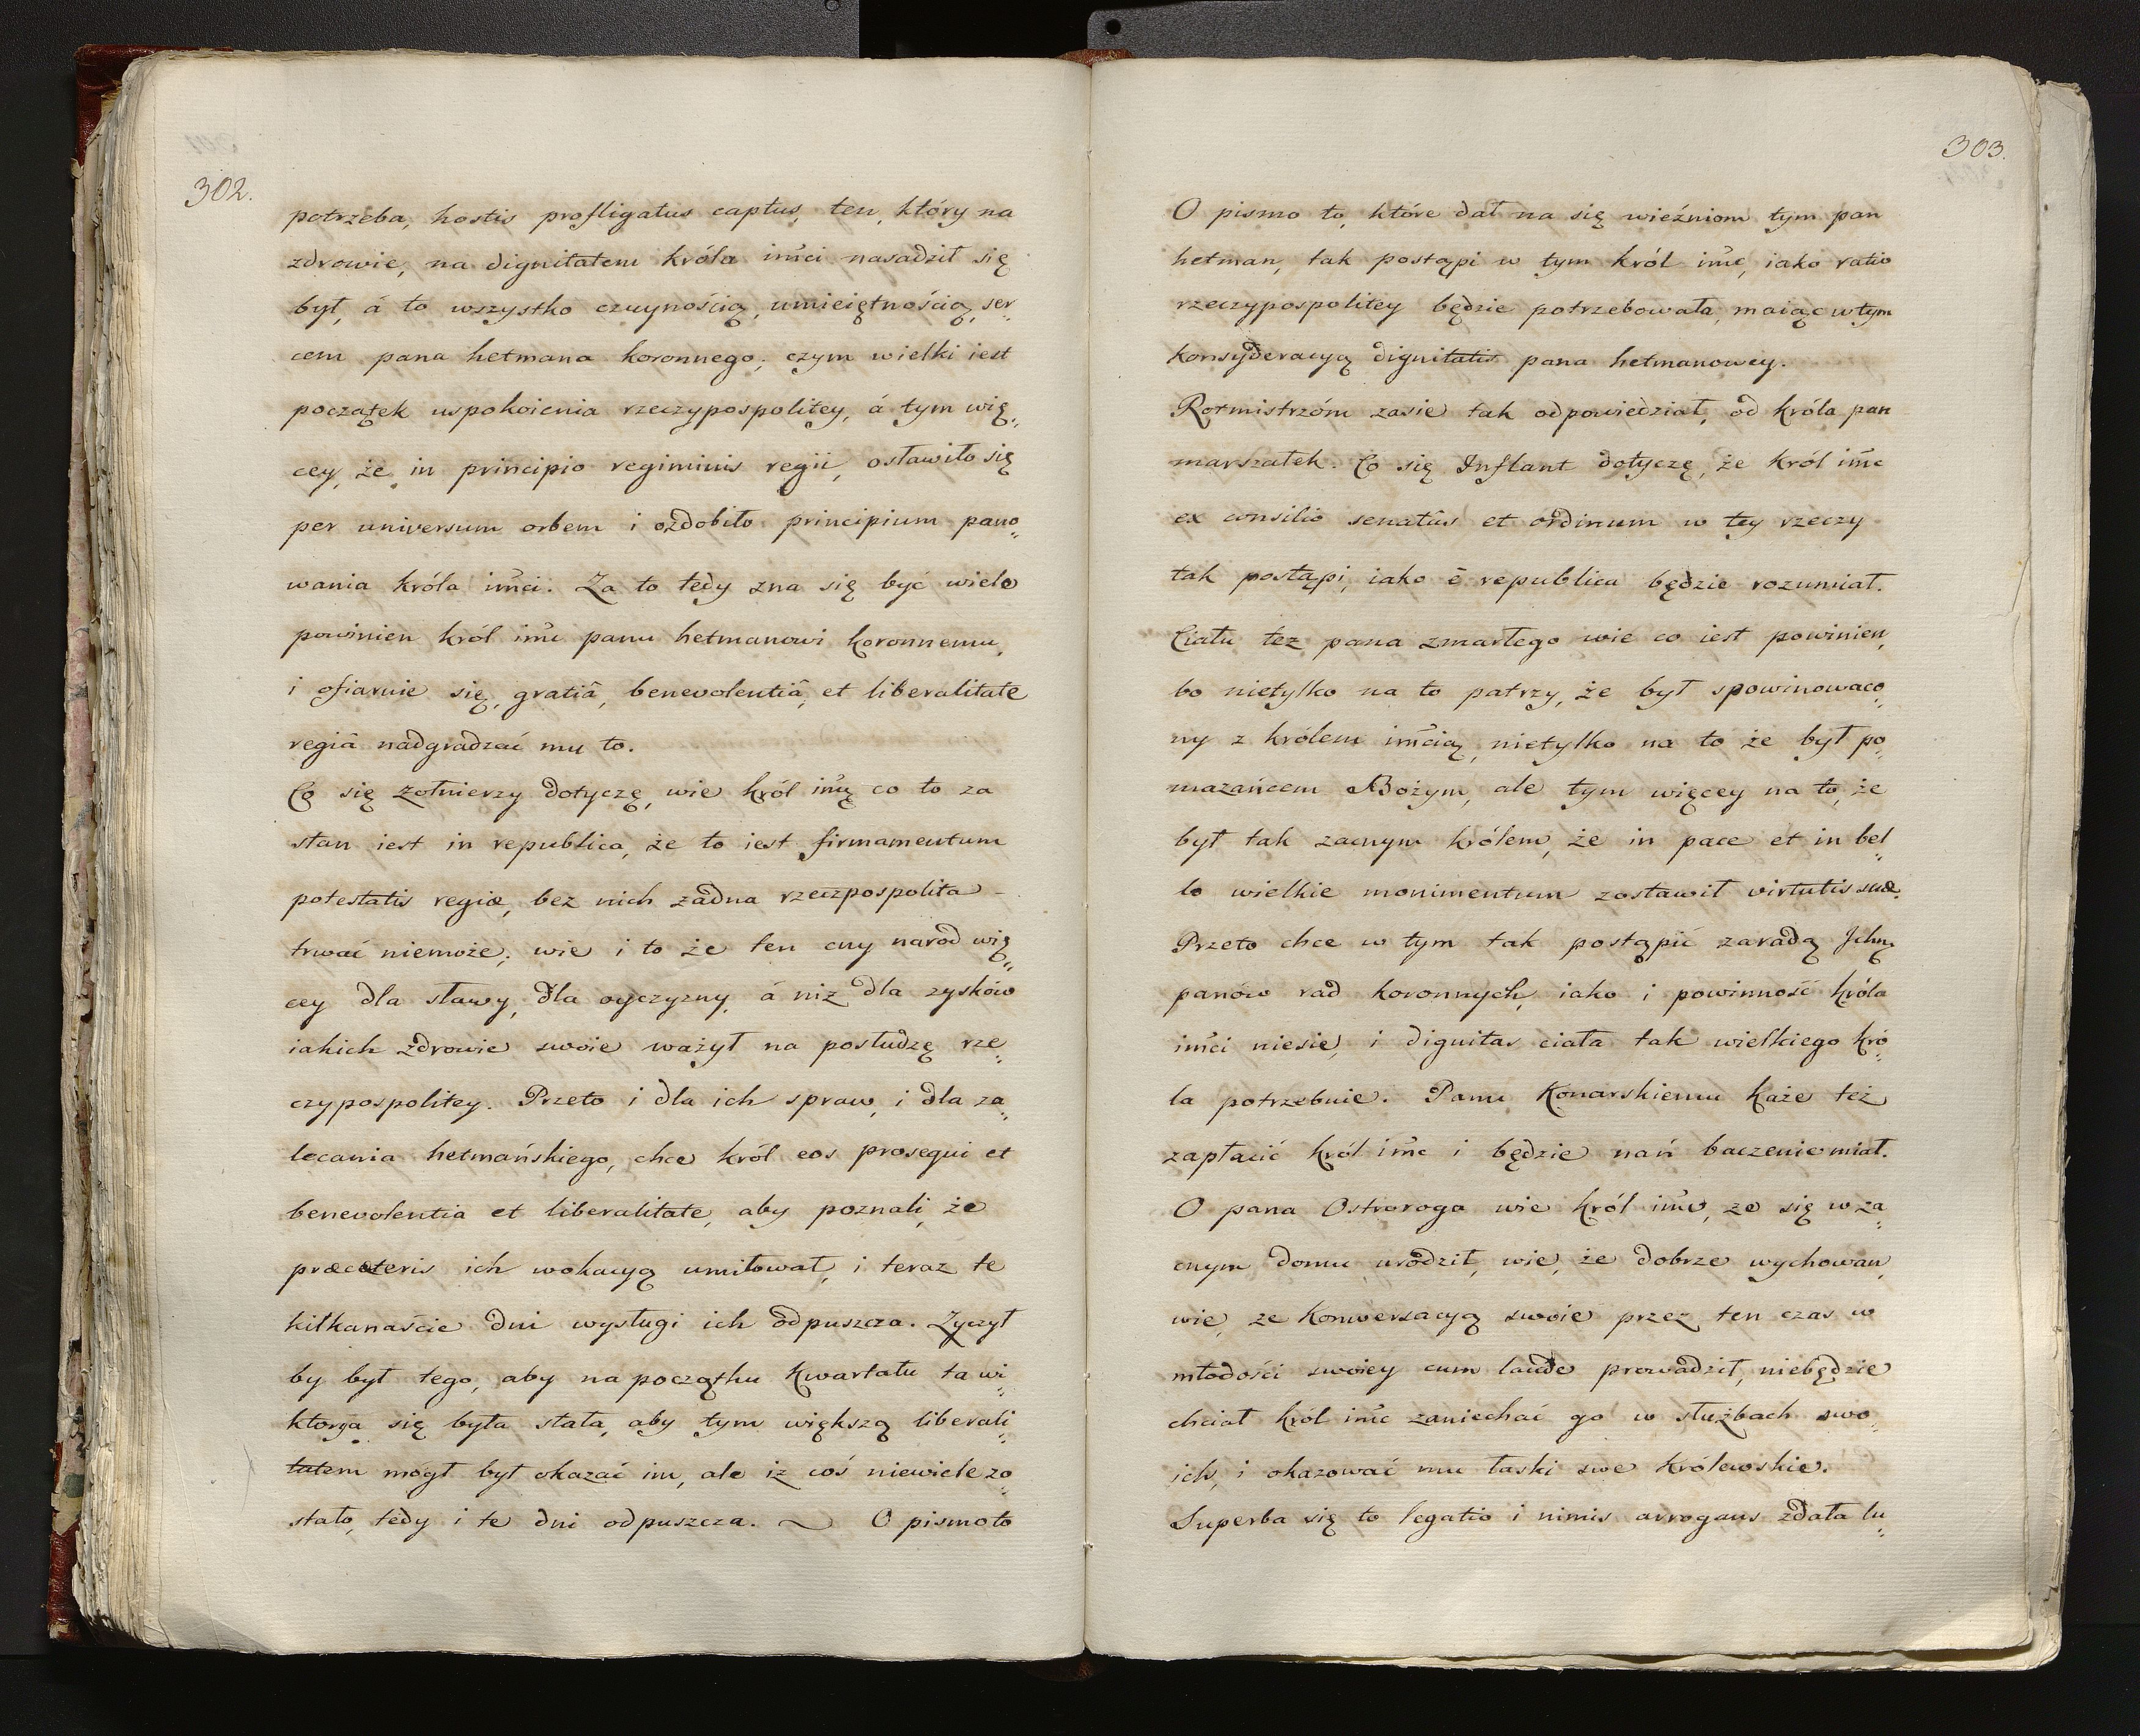 302.
potrzeba, hostis profligatus captus, ten, który na
zdrowie, na dignitatem króla imci nasadził się
był, á to wszystko czuynością, umieiętnością, ser„
cem pana hetmana koronnego; czym wielki iest
początek uspokoienia rzeczypospolitey, á tym wię„
cey, że in principio regiminis regii, osławiło się
per universum orbem i ozdobiło principium pano„
wania króla imci. Za to tedy zna się być wiele
powinien król imc panu hetmanowi koronnemu,
i ofiaruie się, gratiâ, benevolentiâ, et liberalitate
regiâ nadgradzać mu to.
Co się żołnierzy dotyczę, wie król imc co to za
stan iest in republica, że to iest firmamentum
potestatis regiæ, bez nich żadna rzeczpospolita
trwać niemoże; wie i to że ten cny narod wię„
cey dla sławy, dla oyczyzny, á niż dla zysków
iakich zdrowie swoie ważył na posłudzę rze„
czypospolitey. Przeto i dla ich spraw, i dla za„
lecania hetmańskiego, chce król eos prosequi et
benevolentia et liberalitate, aby poznali, że
præceteris ich wokacyą umiłował, i teraz te
kilkanaście dni wysługi ich odpuszcza. Zyczył
by był tego, aby na początku kwartału ta wi„
ktorya się była stała, aby tym większą liberali„
tatem mógł był okazać im, ale iz coś niewiele zo„
stało, tedy i te dni odpuszcza. ~ O pismo to
303.
O pismo to, które dał na się wieźniom tym pan
hetman, tak postąpi w tym król imc, iako ratio
rzeczypospolitey będzie potrzebowała, maiąc w tym
konsyderacyą dignitatis pana hetmanowey.
Rotmistrzóm zasie tak odpowiedział, od króla pan
marszałek. Co się Inflant dotyczę, że król imc
ex consilio senatûs et ordinum w tey rzeczy
tak postąpi, iako ê republica będzie rozumiał.
Ciału też pana zmarłego wie co iest powinien,
bo nietylko na to patrzy, że był spowinowaco„
ny z królem imcią, nietylko na to że był po„
mazańcem Bożym, ale tym więcey na to, że
był tak zacnym królem, że in pace et in bel„
lo wielkie monimentum zostawił virtutis suæ.
Przeto chce w tym tak postąpić za radą Ichm
panów rad koronnych, iako i powinność króla
imci niesie, i dignitas ciała tak wielkiego kró„
la potrzebuie. Panu Konarskiemu każe też
zapłacić król imc i będzie nań baczenie miał.
O pana Ostroroga wie król imc, ze się w za„
cnym domu urodził, wie, że dobrze wychowan,
wie, ze konwersacyą swoie przez ten czas w
młodości swoiey cum laude prowadził, niebędzie
chciał król imc zaniechać go w służbach swo„
ich, i okazować mu łaski swe królewskie.
Superba się to legatio i nimis arrogans zdała lu„